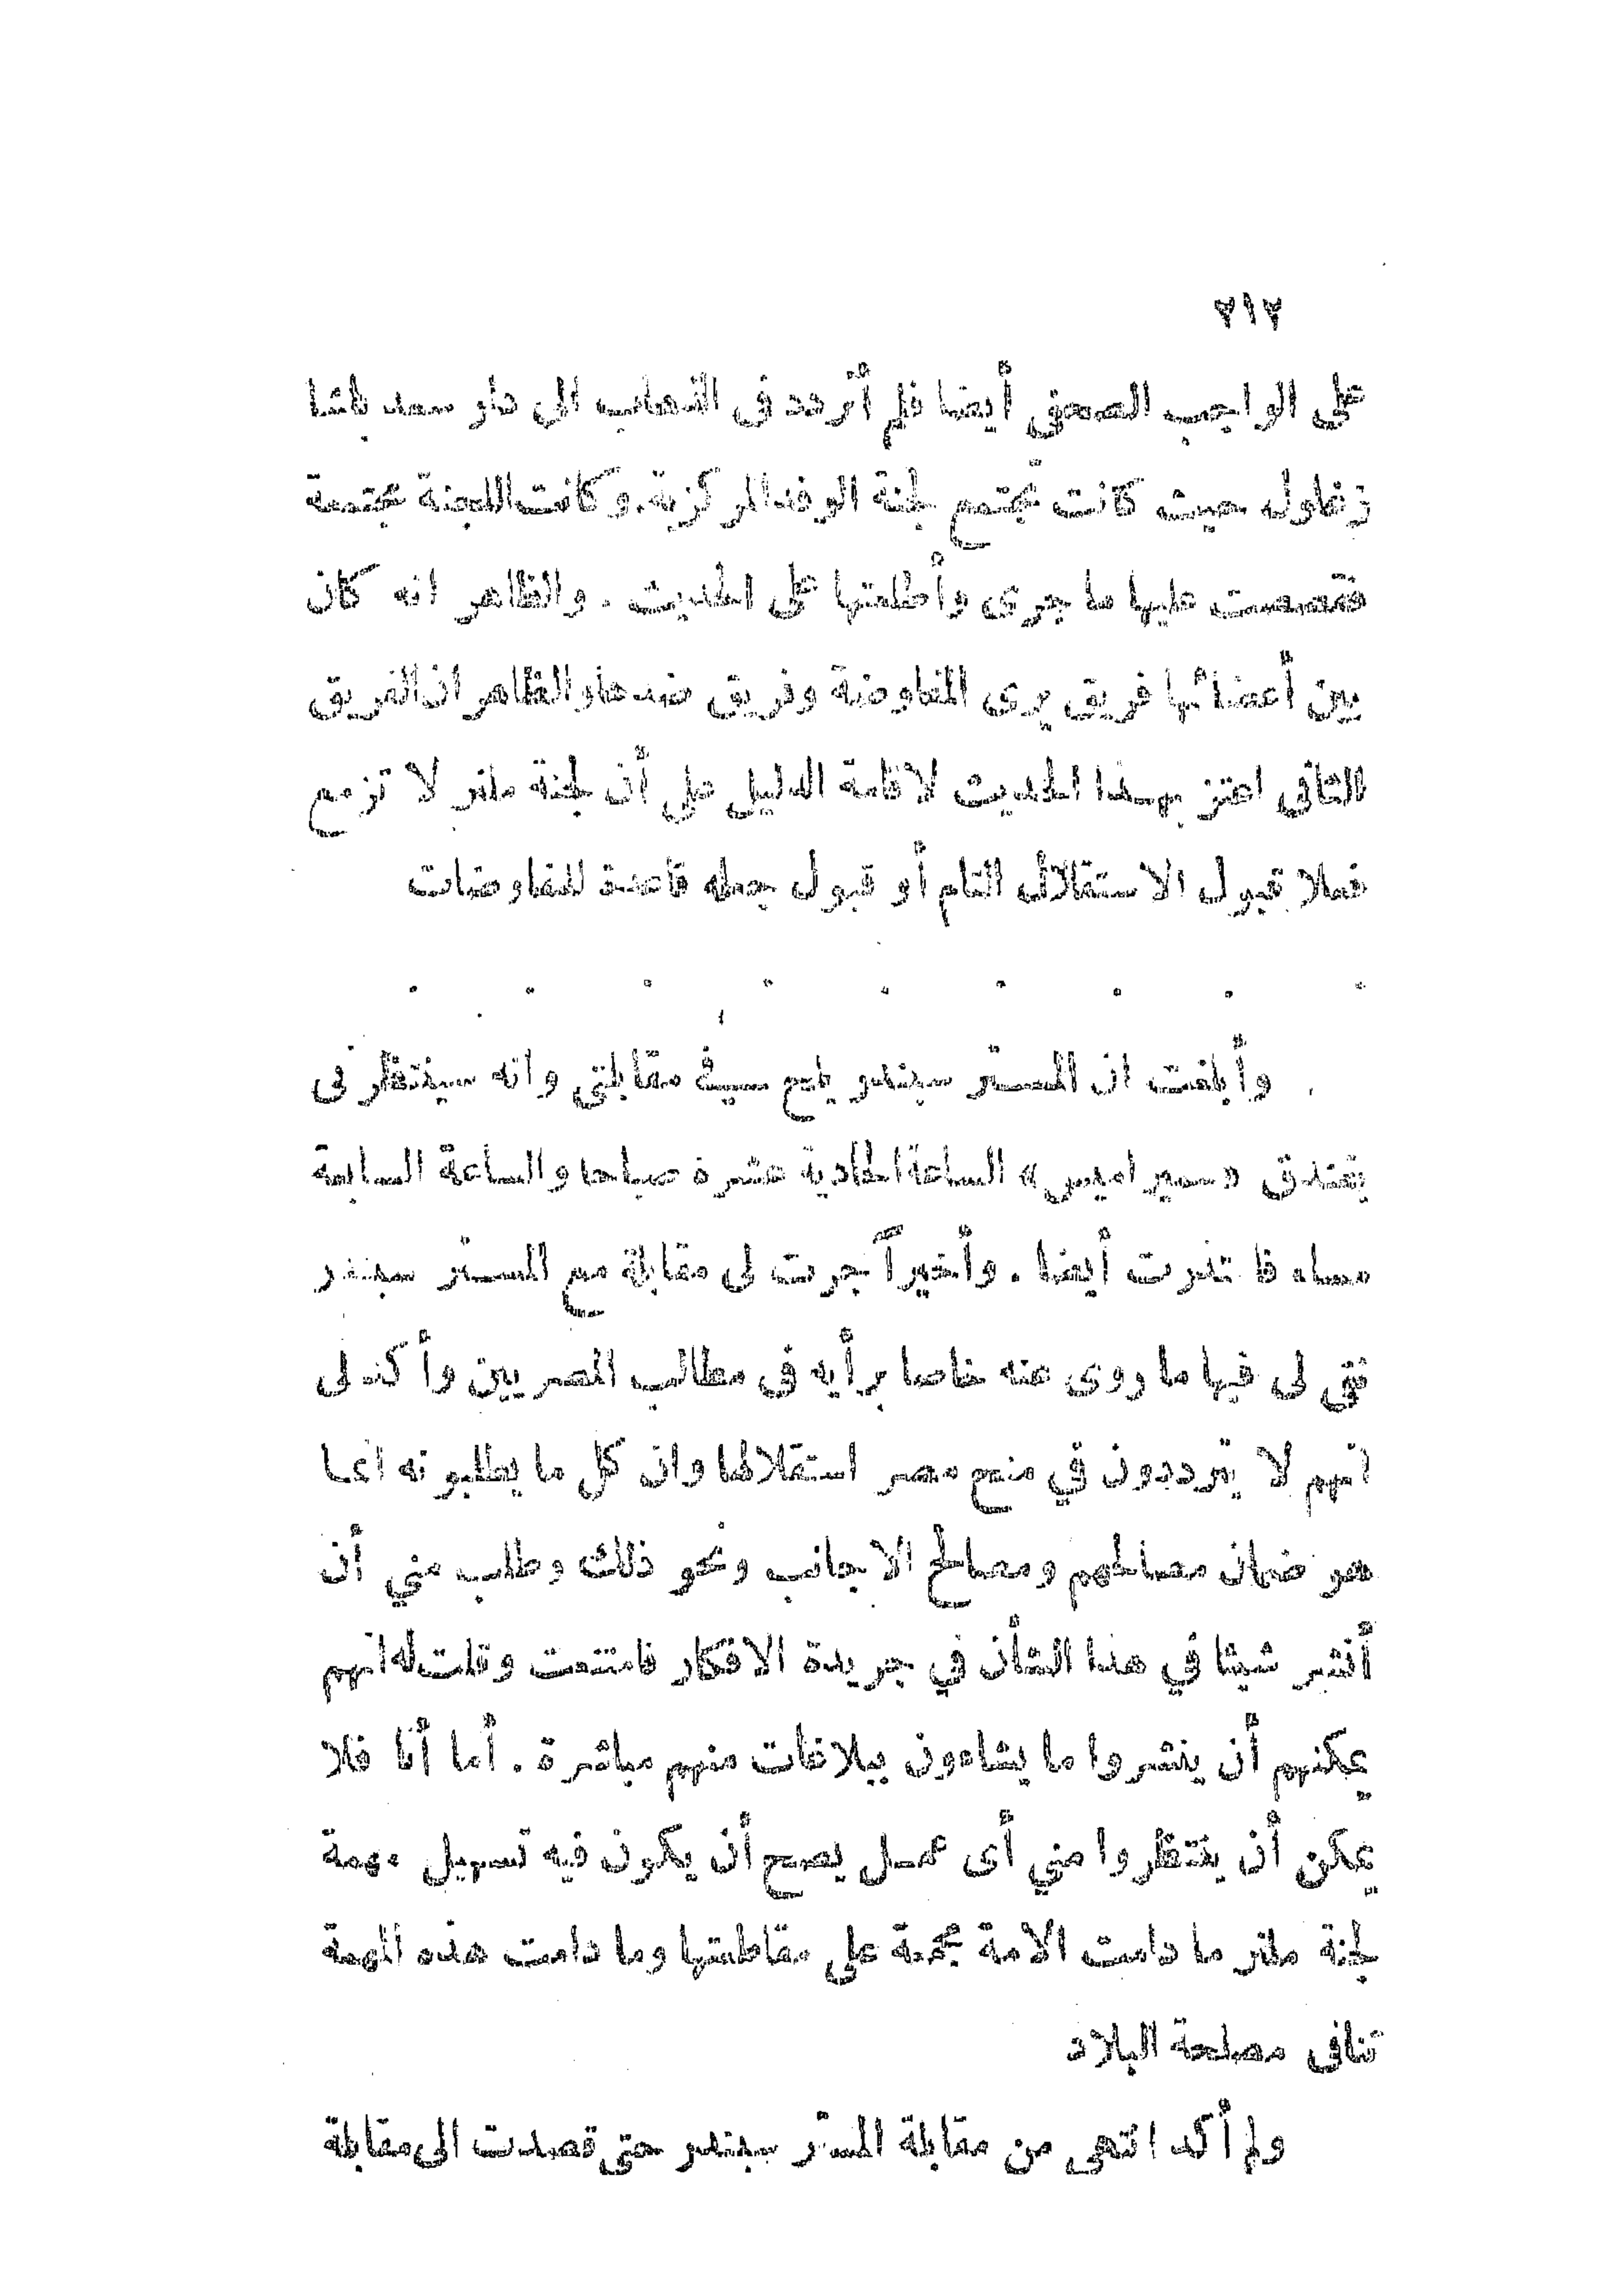 ٢١٢
على الواجب الصحفي أيضا فلم أتردد فى الذهاب الى دار سعد باشا
زغلول حيث كانت تجتمع لجنة الوفد المركزية. وكانت اللجنة مجتمعة
فقصصت عليها ما جرى وأطلعتها على الحديث . والظاهر انه كان
بين أعضائها فريق يرى المفاوضة وفريق ضدها والظاهر ان الفريق
الثانى اعتز بهذا الحديث لاقامة الدليل على أن لجنة ملنر لا تزمع
فعلا قبول الاستقلال التام أو قبول جعله قاعدة للمفاوضات
. . . . . . . . .
وأبلغت ان المستر سبندر يلح فى مقابلتي وانه سينتظرنى
بفندق «سميراميس» الساعة الحادية عشرة صباحا والساعة السابعة
مساء فاعتذرت أيضا . وأخيراً جرت لى مقابلة مع المستر سبندر
نفى لى فيها ما روى عنه خاصا برأيه فى مطالب المصريين وأكد لى
انهم لا يترددون في منح مصر استقلالها وان كل ما يطلبونه انما
هو ضمان مصالحهم ومصالح الاجانب ونحو ذلك وطلب مني أن
أنشر شيئا في هذا الشأن في جريدة الافكار فامتنعت وقلت له انهم
يمكنهم أن ينشروا ما يشاءون ببلاغات منهم مباشرة . أما أنا فلا
يمكن أن ينتظروا مني أى عمل يصح أن يكون فيه تسهيل مهمة
لجنة ملنر ما دامت الامة مجمعة على مقاطعتها وما دامت هذه المهمة
تنافى مصلحة البلاد
ولم أكد انتهى من مقابلة المستر سبندر حتى قصدت الى مقابلة